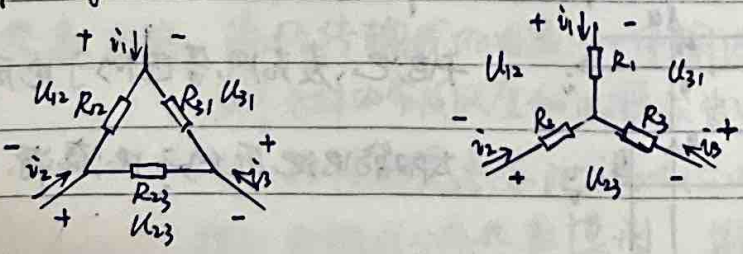 + i₁↓ -
U₁₂ R₁₂ R₃₁ U₃₁
- +
i₂ i₃
+ R₂₃ -
U₂₃
+ i₁↓ -
U₁₂ R₁ U₃₁
- R₂ R₃ +
i₂ i₃
+ U₂₃ -